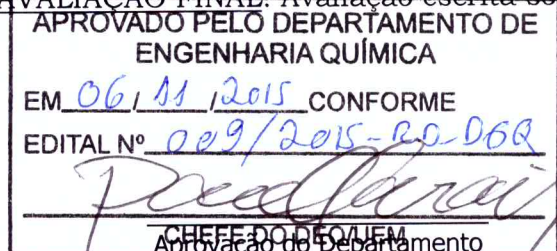 AVALIAÇÃO FINAL: Avaliação escrita so
APROVADO PELO DEPARTAMENTO DE
ENGENHARIA QUÍMICA
EM 06/11/2015 CONFORME
EDITAL Nº 009/2015-RD-DEQ
CHEFE DO DEQ/UEM
Aprovação do Departamento